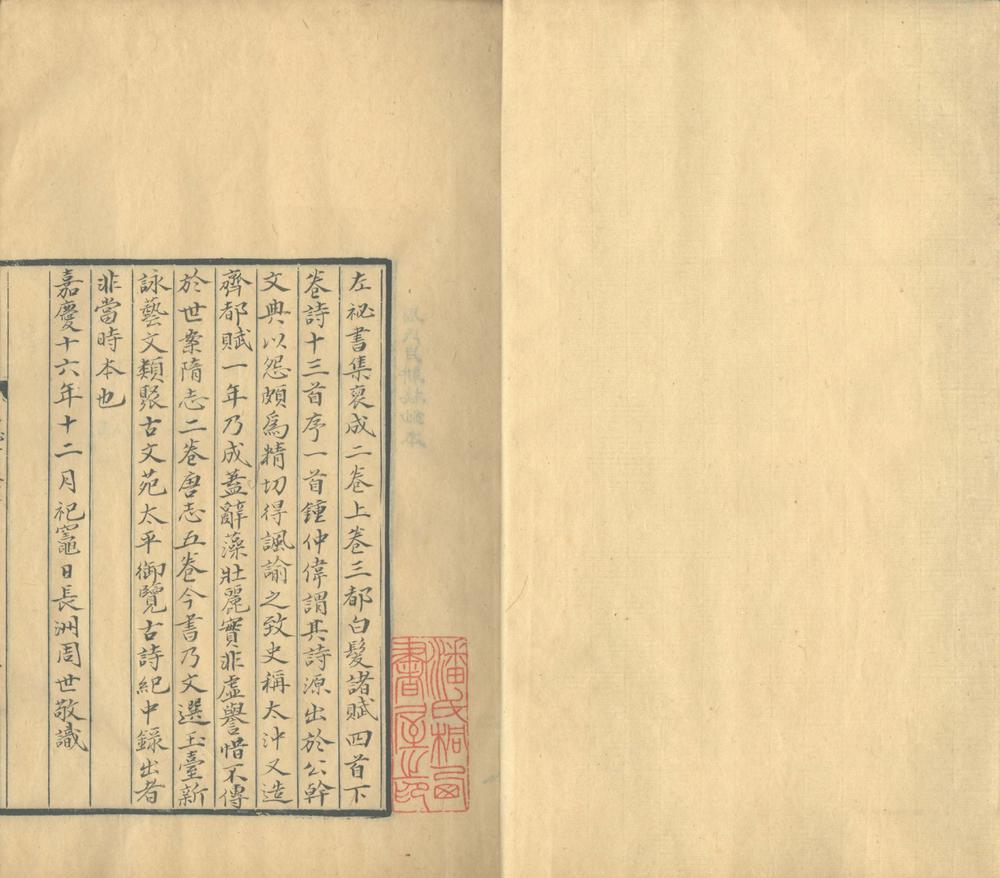 左祕書集裒成二卷上卷三都白髮諸賦四首下
卷詩十三首序一首鍾仲偉謂其詩源出於公幹
文典以怨頗爲精切得諷諭之致史稱太沖又造
齊都賦一年乃成蓋辭藻壯麗實非虛譽惜不傳
於世案隋志二卷唐志五卷今書乃文選玉臺新
詠藝文類聚古文苑太平御覽古詩紀中錄出者
非當時本也
嘉慶十六年十二月祀竈日長洲周世敬識
潘氏桐西
書屋之印